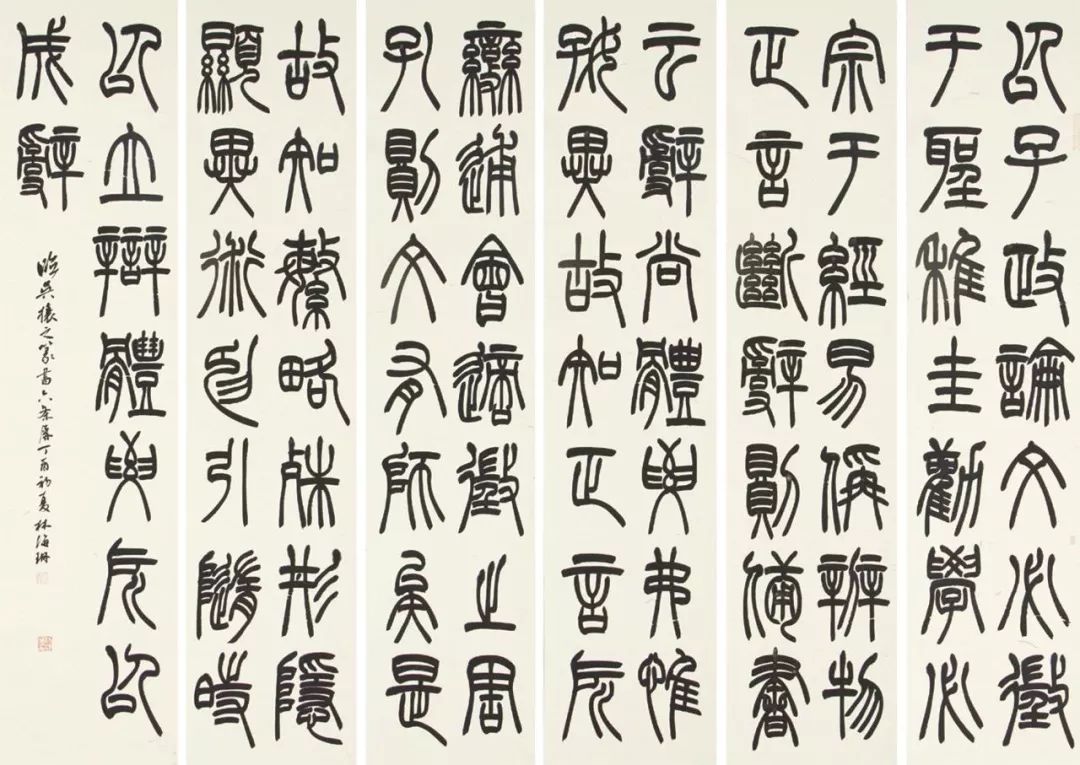 以子政論文必徵
于聖稚圭勸學必
宗于經易偁辨物
正言斷辭則備書
云辭尚體要弗惟
好異故知正言所
變通會適徵之周
孔則文有師矣是
故知繁略殊形隱
顯異術抑引隨時
以立辯體要所以
成辭
臨吳攘之篆書六條屏丁酉初夏林海珊